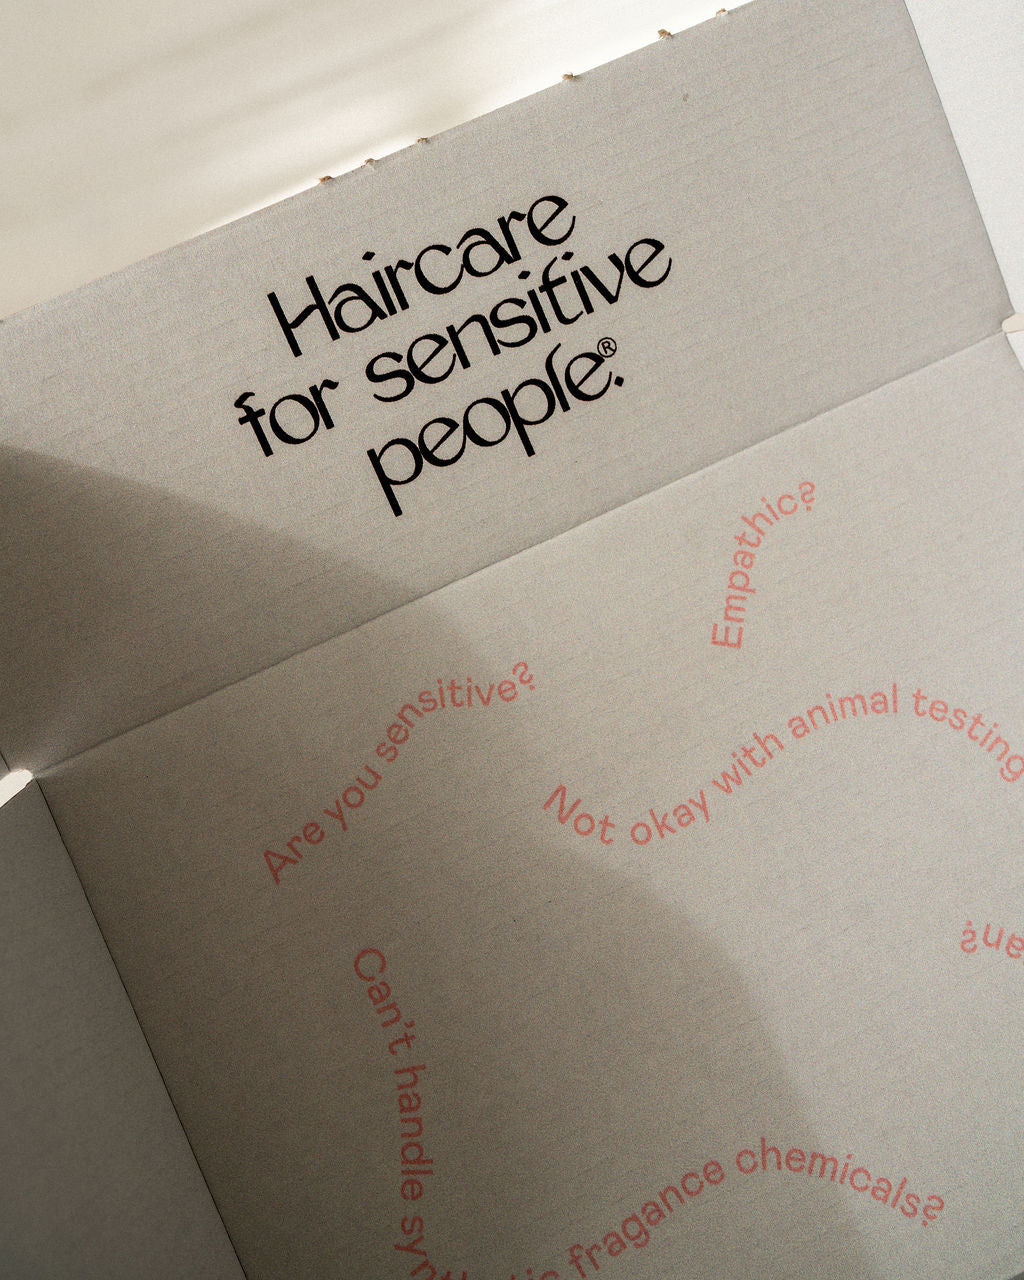 Haircare
for sensitive
people.®
Empathic?
Are you sensitive?
Not okay with animal testing
Can't handle
fragance chemicals?